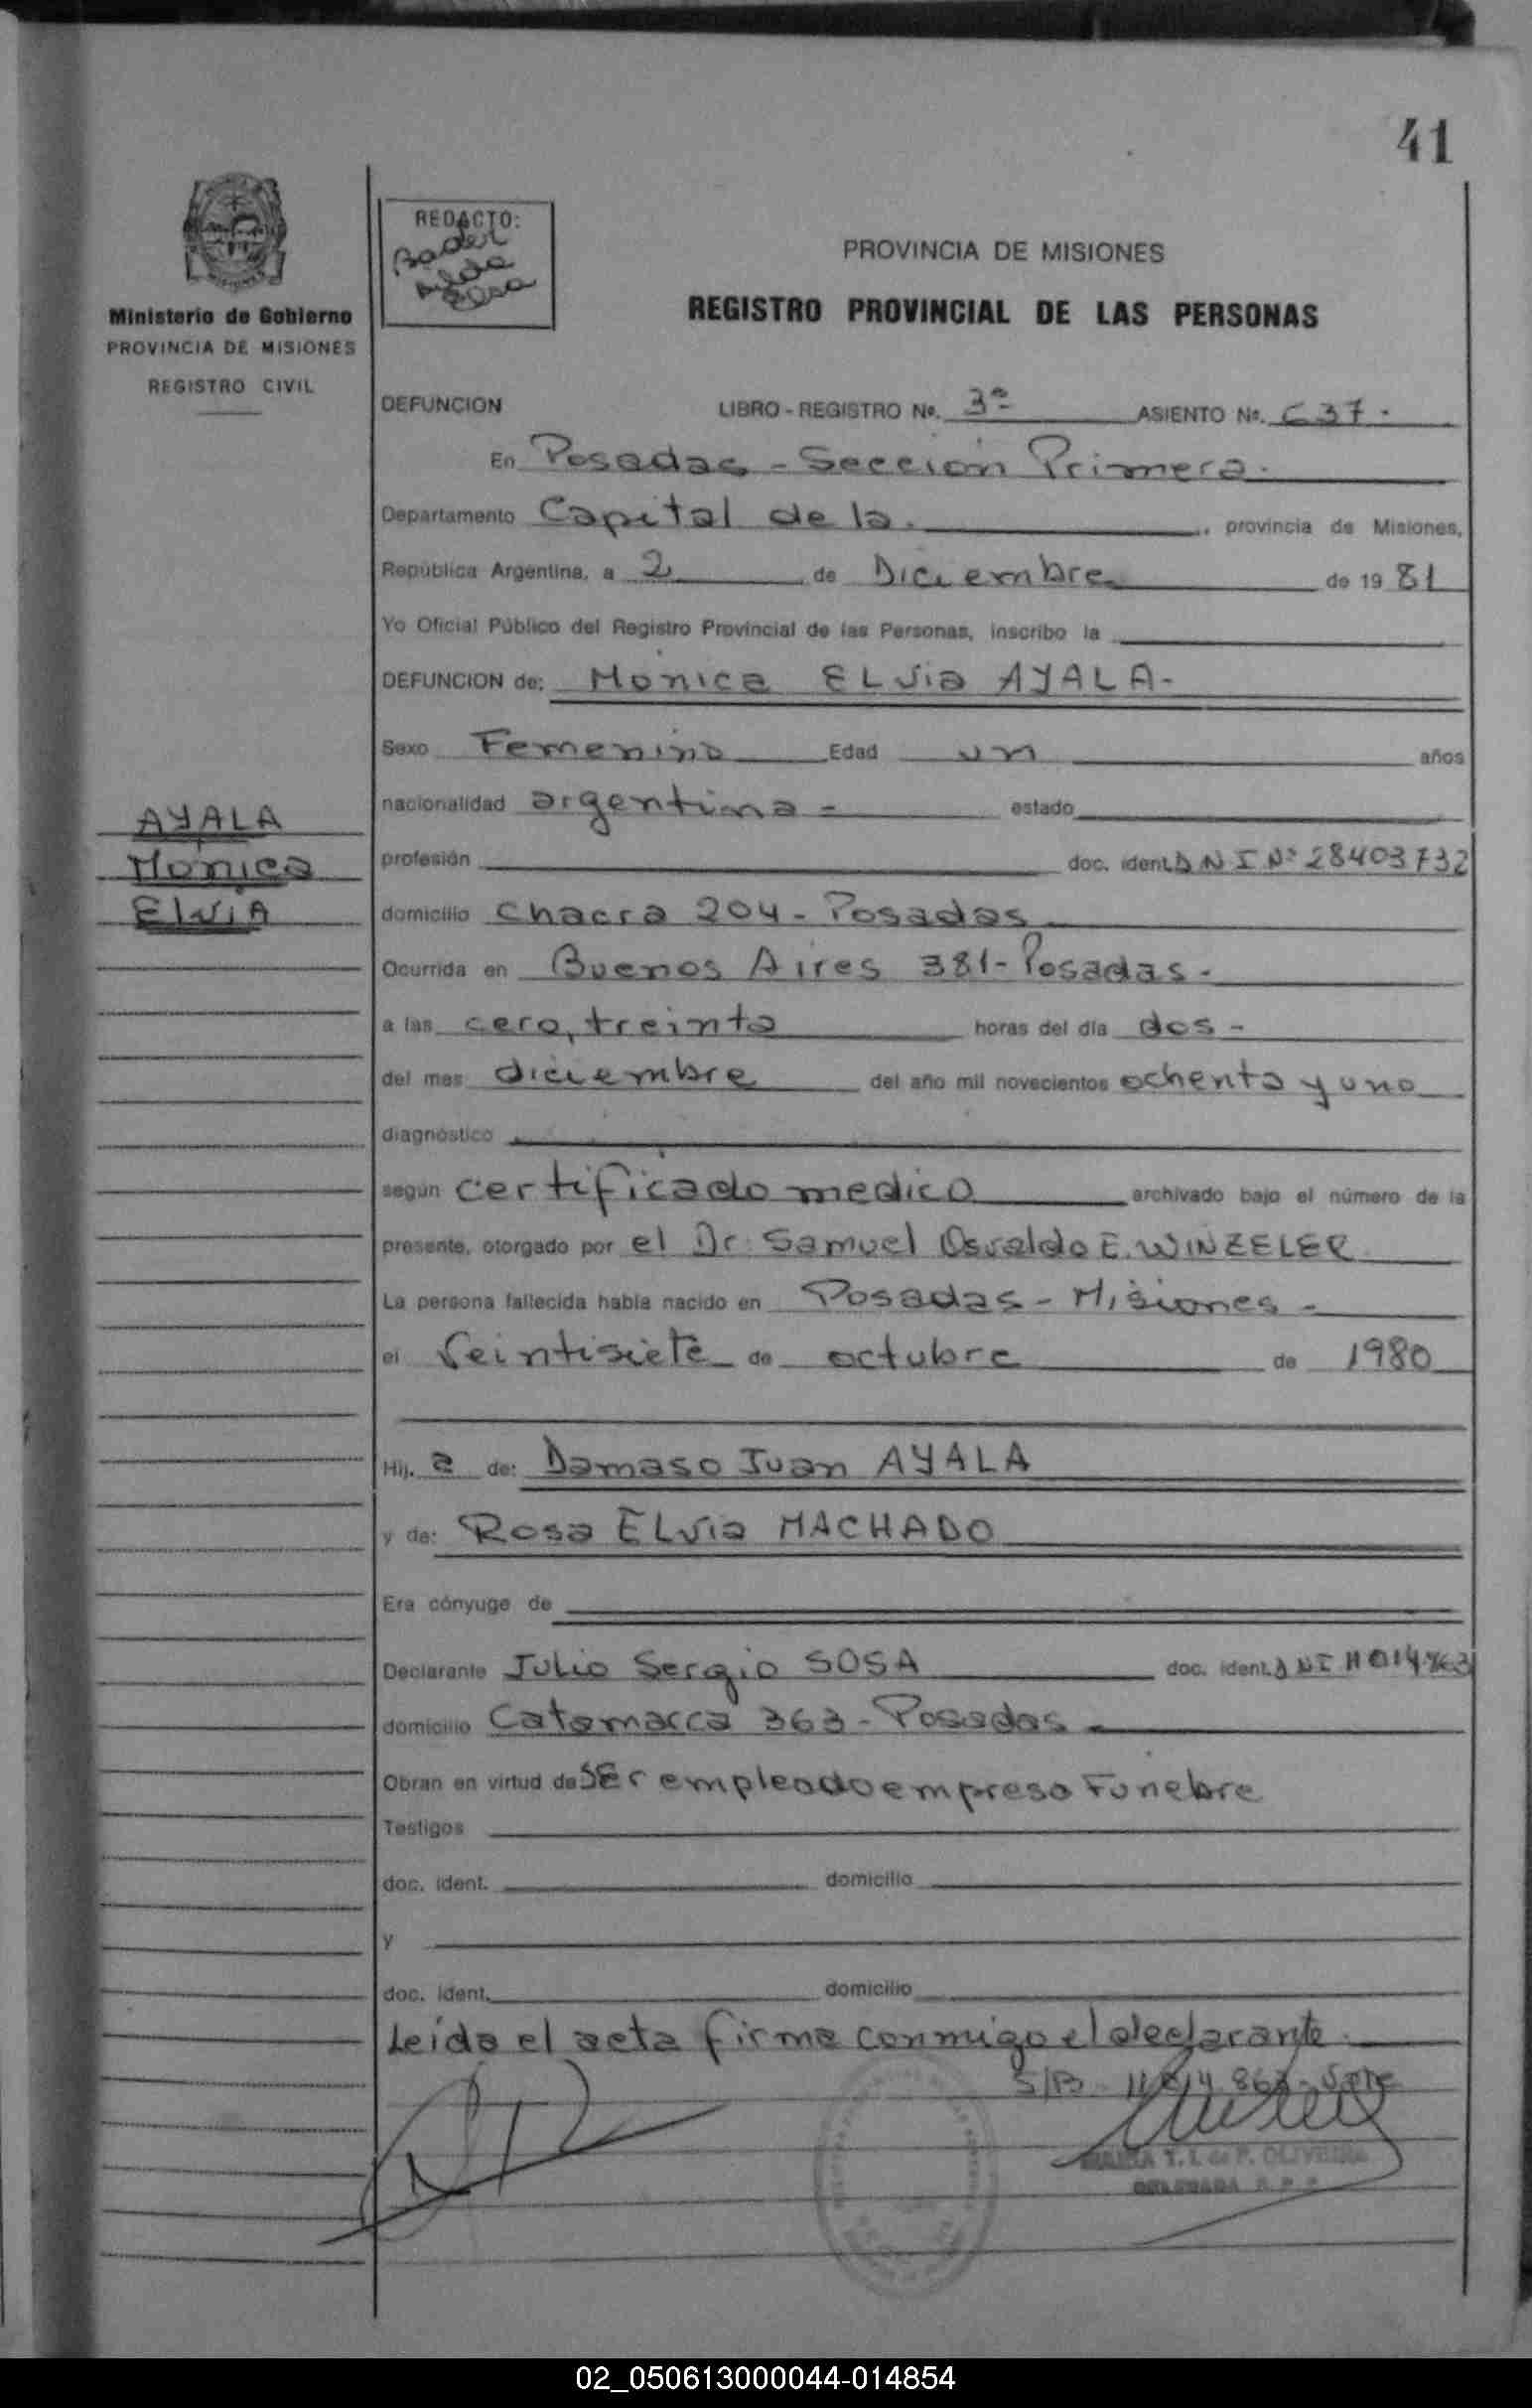 41
REDACTO:
Bader
Ilda
Elsa
Ministerio de Gobierno
PROVINCIA DE MISIONES
REGISTRO CIVIL
PROVINCIA DE MISIONES
REGISTRO PROVINCIAL DE LAS PERSONAS
DEFUNCION LIBRO - REGISTRO No. 3º ASIENTO No. 637.
En Posadas - Sección Primera.
Departamento Capital de la. provincia de Misiones,
República Argentina, a 2 de Diciembre de 19 81
Yo Oficial Público del Registro Provincial de las Personas, inscribo la
DEFUNCION de: Mónica ELvia AYALA-
Sexo Femenino Edad un años
nacionalidad argentina - estado
AYALA
Mónica
ElviA
profesión doc. ident. DNI Nº 28403732
domicilio Chacra 204 - Posadas
Ocurrida en Buenos Aires 381- Posadas -
a las cero, treinta horas del día dos -
del mes diciembre del año mil novecientos ochenta y uno
diagnóstico
según certificado medico archivado bajo el número de la
presente, otorgado por el Dr. Samuel Osvaldo E. WINZELER
La persona fallecida había nacido en Posadas - Misiones -
el Veintisiete de octubre de 1980
Hij. a de: Damaso Juan AYALA
y de: Rosa ELvia MACHADO
Era cónyuge de
Declarante Julio Sergio SOSA doc. ident. DNI
domicilio Catamarca 363 - Posadas -
Obran en virtud de SEr empleado empresa Funebre
Testigos
doc. ident. domicilio
y
doc. ident. domicilio
Leida el acta firma conmigo el declarante.
S/B
MARIA T. I. de P. OLIVEIRA
DELEGADA R. P. P.
02_050613000044-014854